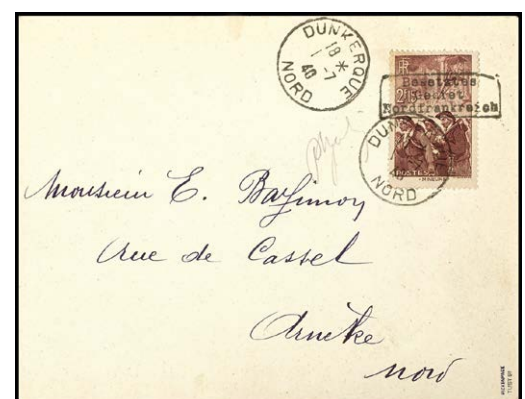 DUNKERQUE
18 *
1 -7
40
NORD
Besetztes
Gebiet
Nordfrankreich
DUNK
NORD
POSTES
Monsieur E.
rue de Cassel
Arneke
Nord